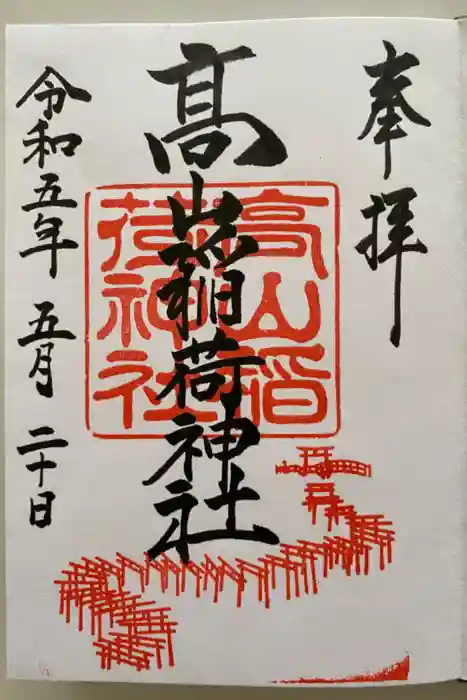 奉拝
髙山稲荷神社
令和五年 五月 二十日
高山稲
荷神社